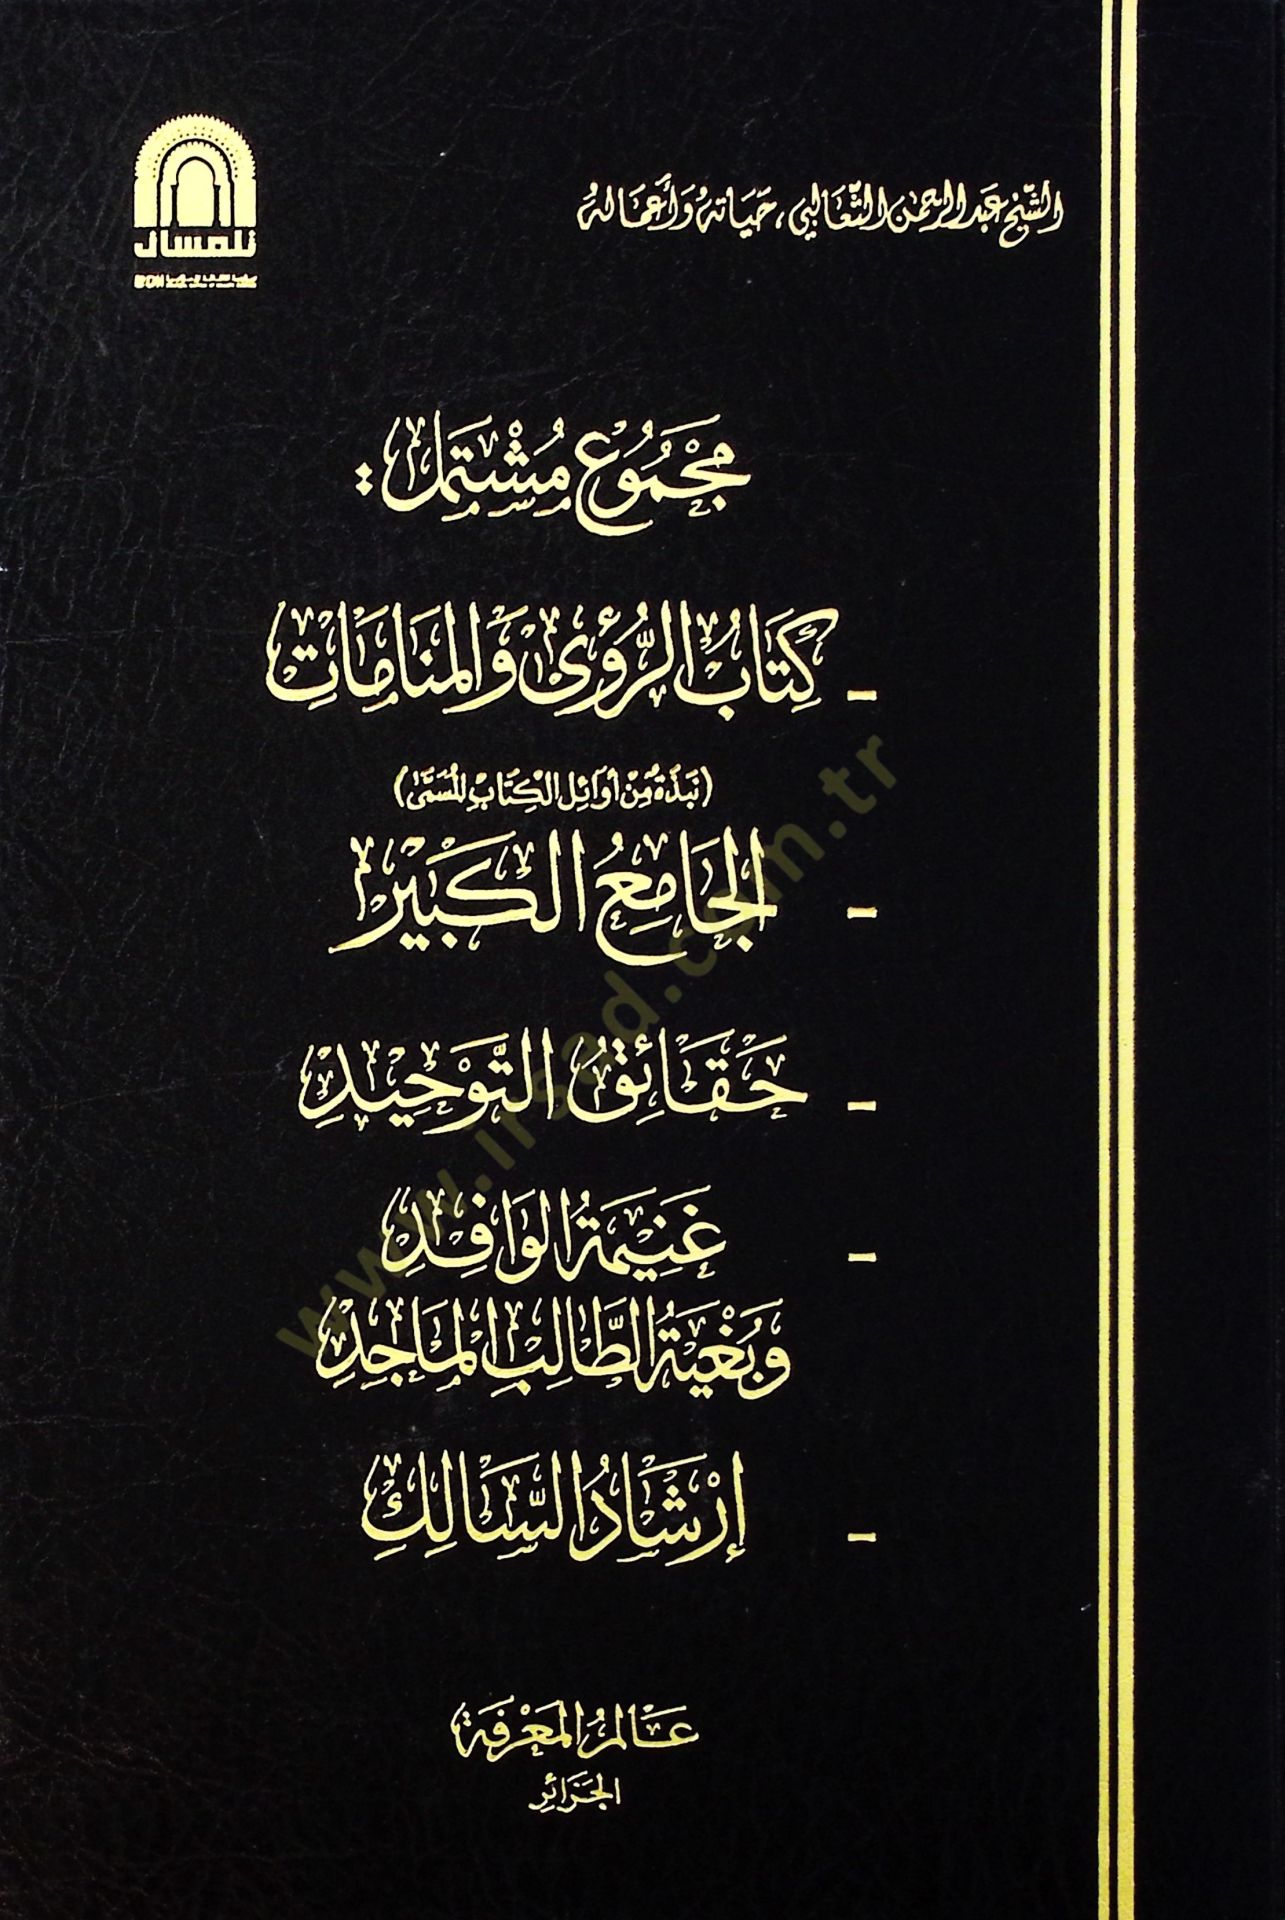 الشّيخ عبد الرحمن الثّعالبي، حَيَاتهُ وَأعمَالهُ
تلمسان
مَجْمُوع مُشْتَمِل :
- كِتَابُ الرُّؤى وَالمنَامَات
(نَبذَة مِن أوَائِل الكِتَاب المُسَمَّى)
- الجَامِعُ الكَبِيْر
- حَقَائِقُ التَّوْحِيدِ
- غَنِيمَةُ الوَافِدِ
وَبُغْيَةُ الطَّالِبِ المَاجِدِ
- إرْشَادُ السَّالِكِ
عَالمُ المَعْرِفَة
الجَزَائِر
www.irsad.com.tr